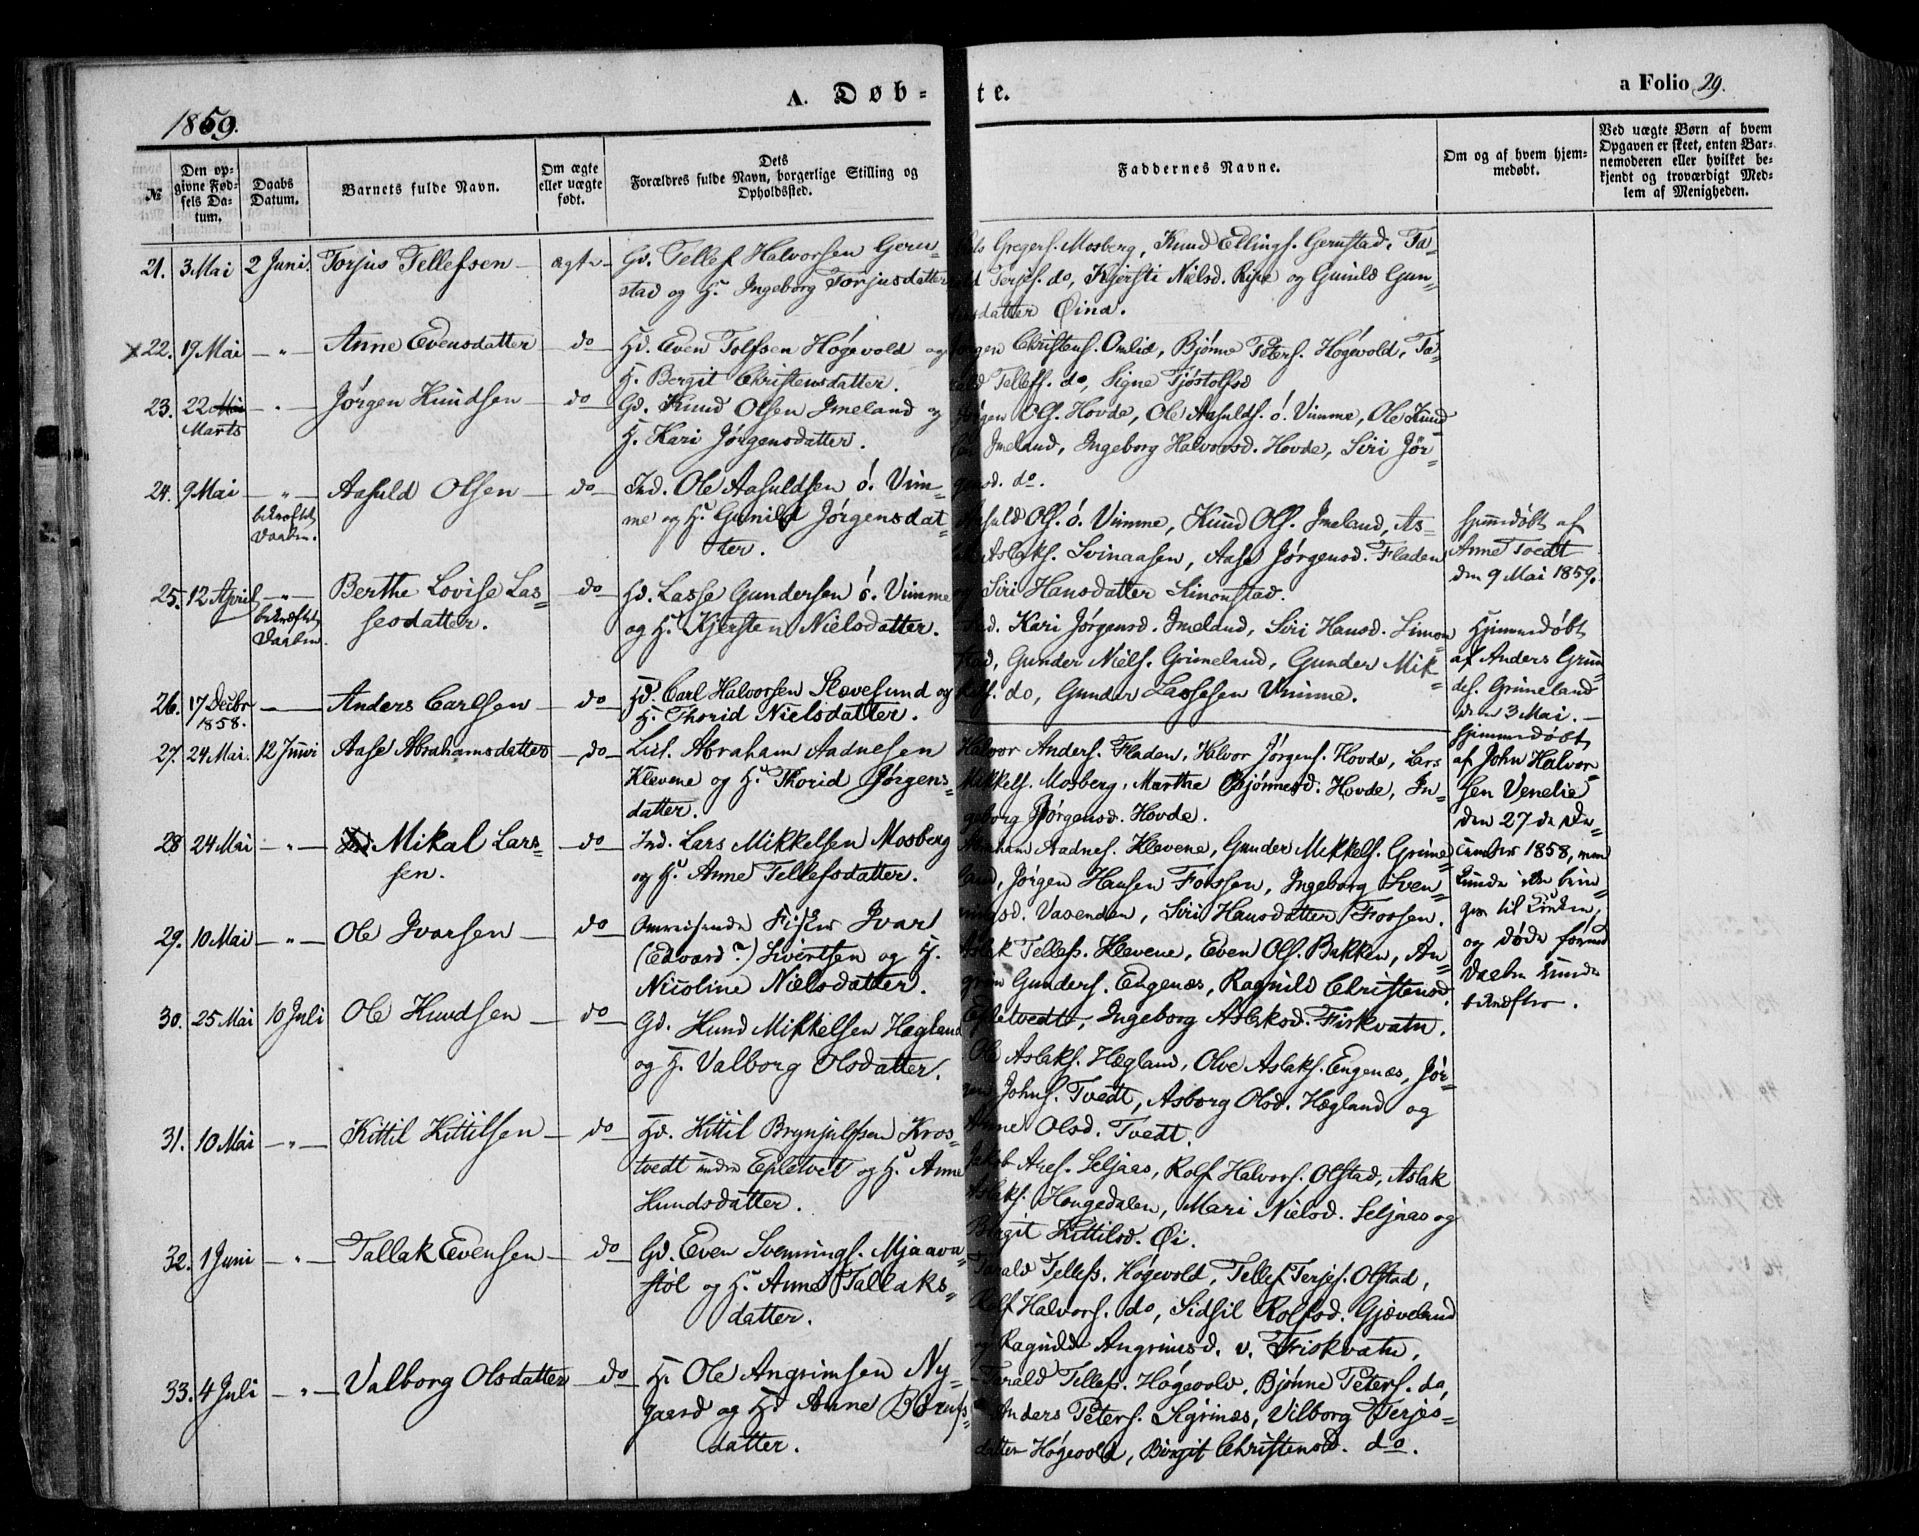 1859.
A. Døb-
te.
a Folio 29.
№
Den op-
givne Fød-
sels Da-
tum.
Daabs
Datum.
Barnets fulde Navn.
Om ægte
eller uægte
født.
Dets
Forældres fulde Navn, borgerlige Stilling og
Opholdssted.
Faddernes Navne.
Om og af hvem hjem-
medøbt.
Ved uægte Børn af hvem
Opgaven er skeet, enten Bar-
nemoderen eller hvilket be-
kjendt og troværdigt Med-
lem af Menigheden.
21. 3 Mai 2 Juni. Torjus Tellefsen — ægte — Gd. Tellef Halvorsen Geru-
stad og H. Ingeborg Torjusdatter
Gregers. Mosberg, Knud Ellings. Gerustad, Ta-
Terjes. do, Kjersti Nielsd. Ripe og Gunild Gun-
datter Øina.
22. 19 Mai — " — Anne Evensdatter — do — Hd. Even Tolfsen Høgevold og
H. Bergit Christensdatter.
Jørgen Christens. Omlid, Bjønne Peters. Høgevold, Ta-
rald Tellefs. do, Signe Tjøstolfsd
23. 22 Mai — " — Jørgen Knudsen — do — Gd. Knud Olsen Imeland og
Marts
H. Kari Jørgensdatter.
Jørgen Ols. Hovde, Ole Aasulds. ó. Vimme, Ole Knud-
Imeland, Ingeborg Halvorsd. Hovde, Siri Jør-
gensd. do.
24. 9 Mai — " — Aasuld Olsen — do — Ind. Ole Aasuldsen ó. Vim-
bekræftet
Daaben.
me og H. Gunild Jørgensdat-
ter.
Aasuld Ols. ó. Vimme, Knud Ols. Imeland, As-
Aslaks. Svinaasen, Aase Jørgensd. Fladen
og Siri Hansdatter Simonstad.
hjemmedøbt af
Anne Tvedt
den 9 Mai 1859.
25. 12 April — " — Berthe Lovise Las-
bekræftet
Daaben
sesdatter. — do — Hd. Lasse Gundersen ó. Vimme
og H. Kjersten Nielsdatter.
Kari Jørgensd. Imeland, Siri Hansd. Simon-
stad, Gunder Niels. Grimeland, Gunder Mik-
kels. do, Gunder Lassesen Vimme.
Hjemmedøbt
af Anders Grun-
des. Grimeland
den 3 Mai. —
26. 17 Decbr
1858. — Anders Carlsen — do — Hd. Carl Halvorsen Slævesund og
H. Thorid Nielsdatter.
hjemmedøbt
af John Halvor-
sen Venelie
den 27 de De-
cember 1858, men
kunde ikke brin-
ges til Kirken,
og døde førend
Daaben kunde
bekræftes.
27. 24 Mai. 12 Juni Aase Abrahamsdatter — do — Leil. Abraham Aadnesen
Klevene og H. Thorid Jørgens-
datter.
Halvor Anders. Fladen, Halvor Jørgens. Hovde, Lars
Mikkels. Mosberg, Marthe Bjønnesd. Hovde, In-
geborg Jørgensd. Hovde.
28 24 Mai — " — Mikal Lars-
sen. — do — Ind. Lars Mikkelsen Mosberg
og H. Anne Tellefsdatter.
Abraham Aadnes. Klevene, Gunder Mikkels. Grime-
land, Jørgen Hansen Fossen, Ingeborg Sven-
ningsd. Vasenden, Siri Hansdatter Fossen.
29. 10 Mai — " — Ole Ivarsen — do — Omreisende Fisker Ivar
(Edvard?) Sivertsen og H.
Nicoline Nielsdatter.
Aslak Tellefs. Klevene, Even Ols. Bakken, An-
grim Gunders. Engenæs, Ragnild Christensd.
Epletvedt, Ingeborg Aslaksd. Fiskvatn.
30. 25 Mai 10 Juli Ole Knudsen — do — Gd. Knud Mikkelsen Hægland
og H. Valborg Olsdatter.
Ole Aslaks. Hægland, Olve Aslaks. Engenæs, Jør-
gen Johns. Tvedt, Asborg Olsd. Hægland og
Anne Olsd. Tvedt.
31. 10 Mai — " — Kittil Kittilsen — do — Hd. Kittil Brynjulfsen Kros-
tvedt under Epletvet og H. Anne
Knudsdatter.
Jakob Ares. Seljaas, Rolf Halvors. Olstad, Aslak
Aslaks. Hougedalen, Mari Nielsd. Seljaas og
Birgit Kittilsd. Øi.
32. 1 Juni — " — Tallak Evensen — do — Gd. Even Svennings. Mjaava-
støl og H. Anne Tallaks-
datter.
Tarald Tellefs. Høgevold, Tellef Terjes. Olstad,
Rolf Halvors. do, Sidsil Rolfsd. Gjæveland
og Ragnild Angrimsd. v. Friskvatn.
33. 4 Juli — " — Valborg Olsdatter — do — H. Ole Angrimsen Ny-
gaard og H. Anne Børufs-
datter.
Tarald Tellefs. Høgevold, Bjønne Peters. do,
Anders Peters. Sigrinæs, Vilborg Terjes-
datter Høgevold, Birgit Christensd. do.